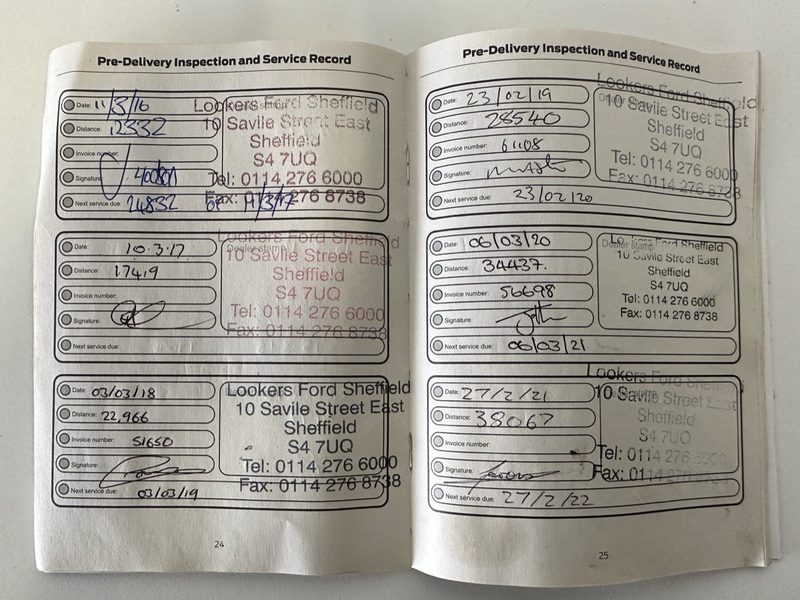 Pre-Delivery Inspection and Service Record
Date: 11/3/16
Distance: 12332
Invoice number:
Signature: 400801
Next service due: 24832 or 11/3/17
Dealer stamp
Lookers Ford Sheffield
10 Savile Street East
Sheffield
S4 7UQ
Tel: 0114 276 6000
Fax: 0114 276 8738
Date: 10.3.17
Distance: 17419
Invoice number:
Signature:
Next service due:
Dealer stamp
Lookers Ford Sheffield
10 Savile Street East
Sheffield
S4 7UQ
Tel: 0114 276 6000
Fax: 0114 276 8738
Date: 03/03/18
Distance: 22,966
Invoice number: 51650
Signature:
Next service due: 03/03/19
Lookers Ford Sheffield
10 Savile Street East
Sheffield
S4 7UQ
Tel: 0114 276 6000
Fax: 0114 276 8738
24
Pre-Delivery Inspection and Service Record
Date: 23/02/19
Distance: 28540
Invoice number: 61108
Signature:
Next service due: 23/02/20
Dealer stamp
Lookers Ford Sheffield
10 Savile Street East
Sheffield
S4 7UQ
Tel: 0114 276 6000
Fax: 0114 276 8738
Date: 06/03/20
Distance: 34437.
Invoice number: 56698
Signature:
Next service due: 06/03/21
Dealer stamp
Lookers Ford Sheffield
10 Savile Street East
Sheffield
S4 7UQ
Tel: 0114 276 6000
Fax: 0114 276 8738
Date: 27/2/21
Distance: 38067
Invoice number:
Signature:
Next service due: 27/2/22
Lookers Ford Sheffield
10 Savile Street East
Sheffield
S4 7UQ
Tel: 0114 276 6000
Fax: 0114 276 8738
25